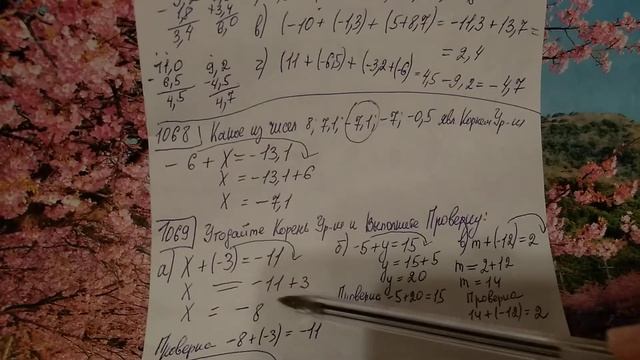 1,8 +3,4
3,4 8,0
в) (-10 + (-1,3) + (5+8,7) = -11,3 + 13,7 =
= 2,4
11,0 9,2
- 6,5 -4,5
4,5 4,7
г) (11 + (-6,5) + (-3,2+(-6) = 4,5 - 9,2 = -4,7
1068 Какое из чисел 8; 7,1; -7,1; -7; -0,5 явл Корнем Ур-ия
- 6 + X = -13,1
X = -13,1+6
X = -7,1
1069 Угадайте Корень Ур-ия и Выполните Проверку:
а) X + (-3) = -11
X = -11+3
X = -8
Проверка -8+(-3) = -11
б) -5+y = 15
y = 15+5
y = 20
Проверка -5+20=15
в) m+(-12) = 2
m = 2+12
m = 14
Проверка
14+(-12) = 2